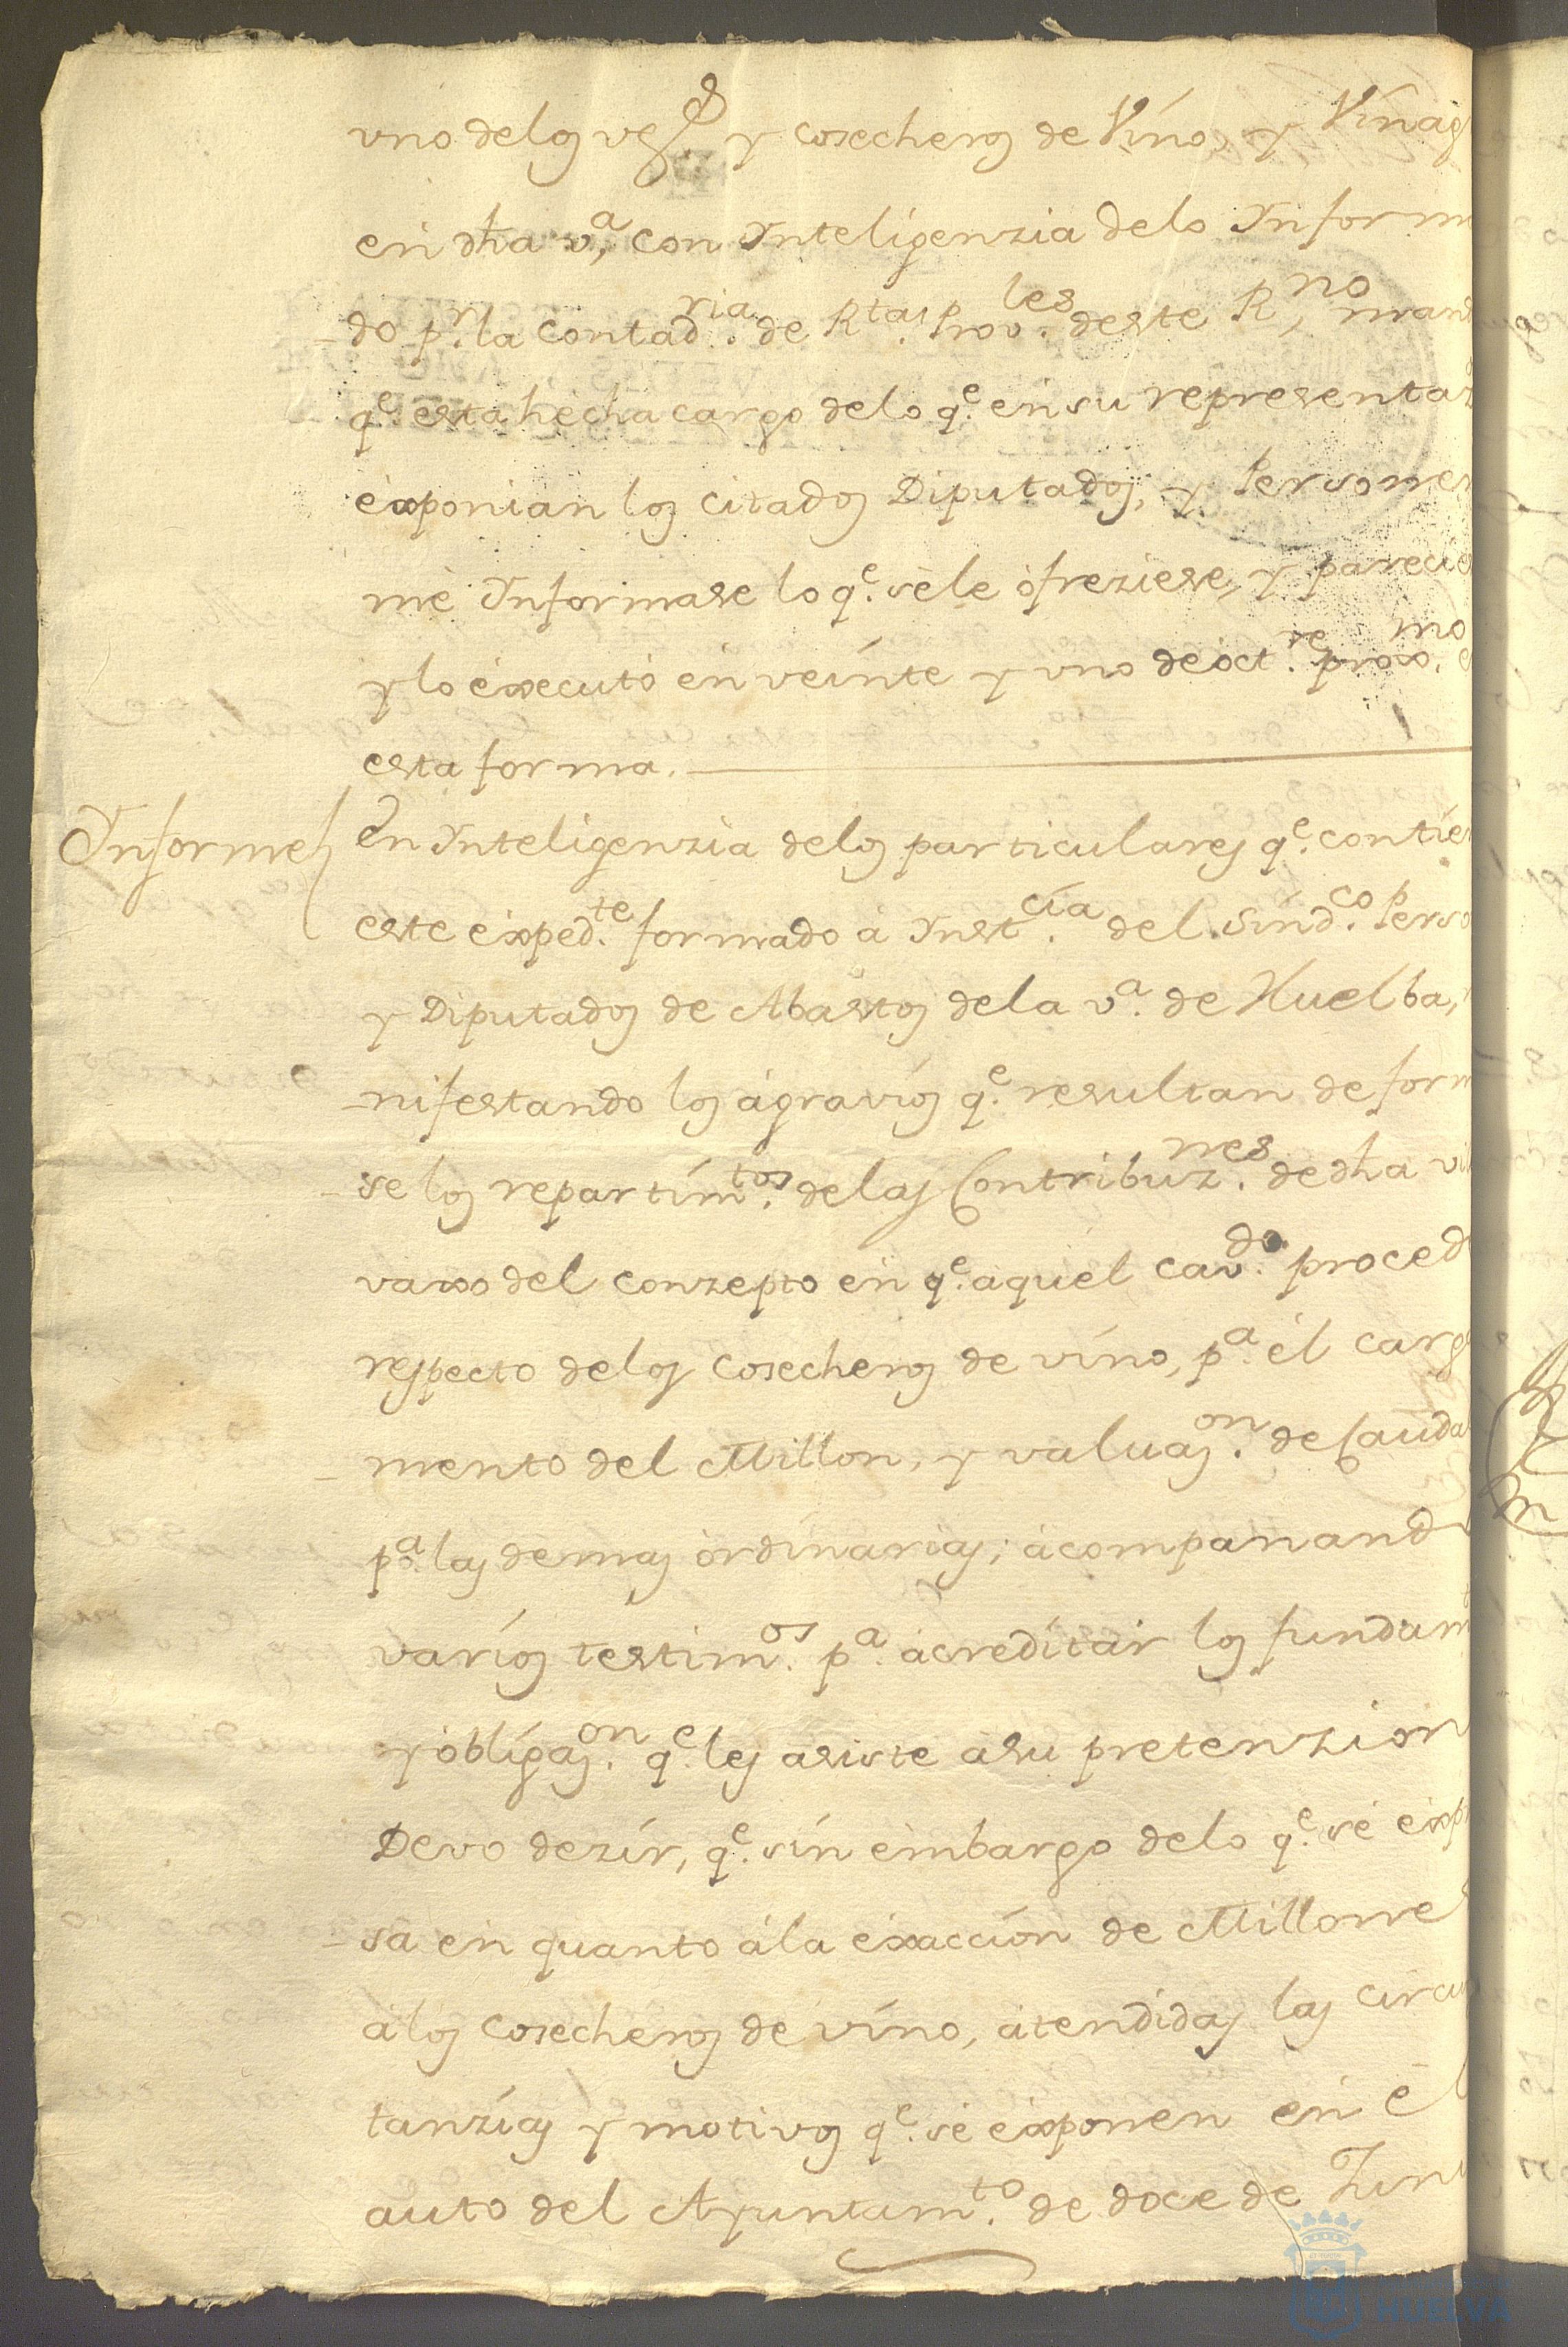 uno delos vez.s y cosecheros de Vino, y Vinag
en dha v.a, con Inteligenzia delo Inform
do p.r la contad.ria de R.tas Prov.les deste R.no, mand
q.e esta hecha cargo delo q.e en su representaz
exponian los citados Diputados, y Personer
me Informase lo q.e sele ofreziese, y parecie
y lo executó en veinte y uno de oct.re prox.mo e
esta forma.
Informe
En Inteligenzia delos particulares q.e contie
este exped.te formado a Inst.cia del Sind.co Perso
y Diputados de Abastos dela v.a de Huelba,
nifestando los agravios q.e resultan de form
se los repartim.tos delas Contribuz.nes de dha vi
vaxo del conzepto en q.e aquel cav.do proced
respecto delos cosecheros de vino, p.a el carg
mento del Millon, y valuas.on de Cauda
p.a las demas ordinarias; acompanand
varios testim.os p.a acreditar los fundam
y obligas.on q.e les asiste asu pretenzion
Devo dezir, q.e sin embargo delo q.e se exp
sa en quanto ála exaccion de Millones
álos cosecheros de vino, atendidas las circu
tanzias y motivos q.e se exponen en el
auto del Ayuntam.to de doce de Jun
HUELVA